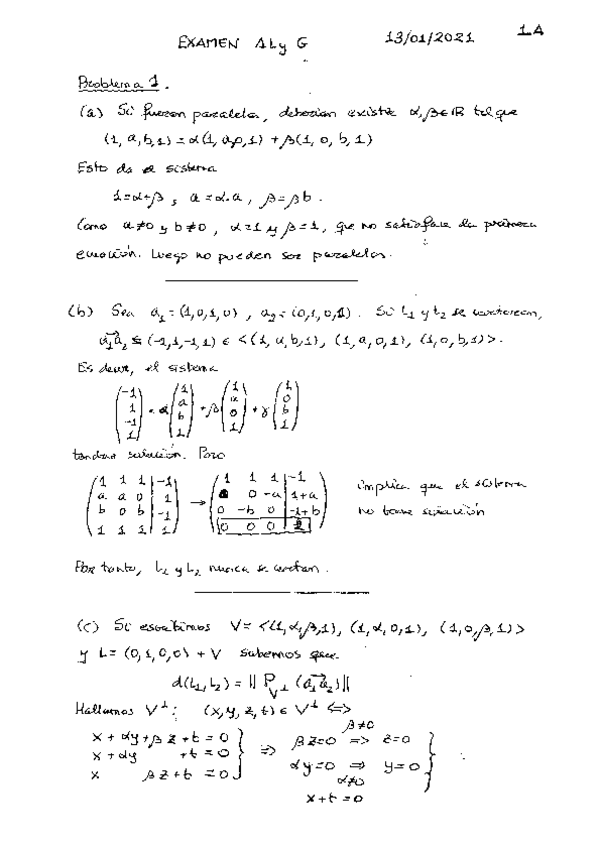 EXAMEN ALy G 13/01/2021 1A
Problema 1.
(a) Si fueran paralelos, deberían existir α, β ∈ ℝ tal que
(1, a, b, 1) = α(1, a, 0, 1) + β(1, 0, b, 1)
Esto da el sistema
1 = α+β, a = α·a, β = βb.
Como a≠0 y b≠0, α=1 y β=1, que no satisface la primera
ecuación. Luego no pueden ser paralelos.
(b) Sea a₁ = (1,0,1,0), a₂ = (0,1,0,1). Si L₁ y L₂ se cortaran,
a₁a₂ = (-1,1,-1,1) ∈ <(1, a, b, 1), (1, a, 0, 1), (1, 0, b, 1)>.
Es decir, el sistema
(-1 1 -1 1) = α (1 a b 1) + β (1 a 0 1) + γ (1 0 b 1)
tendría solución. Pero
( 1 1 1 | -1 ) → ( 1 1 1 | -1 ) implica que el sistema
( a a 0 | 1 ) ( 0 0 -a | 1+a ) no tiene solución
( b 0 b | -1 ) ( 0 -b 0 | -1+b )
( 1 1 1 | 1 ) ( 0 0 0 | 2 )
Por tanto, L₁ y L₂ nunca se cortan.
(c) Si escribimos V = <(1, α, β, 1), (1, α, 0, 1), (1, 0, β, 1)>
y L = (0, 1, 0, 0) + V sabemos que
d(L₁, L₂) = || P_V⊥ (a₁a₂) ||
Hallamos V⊥: (x, y, z, t) ∈ V⊥ ⟺
x + αy + βz + t = 0 } ⇒ βz=0 ⇒ (β≠0) z=0
x + αy + t = 0 } αy=0 ⇒ (α≠0) y=0
x βz + t = 0 } x+t=0